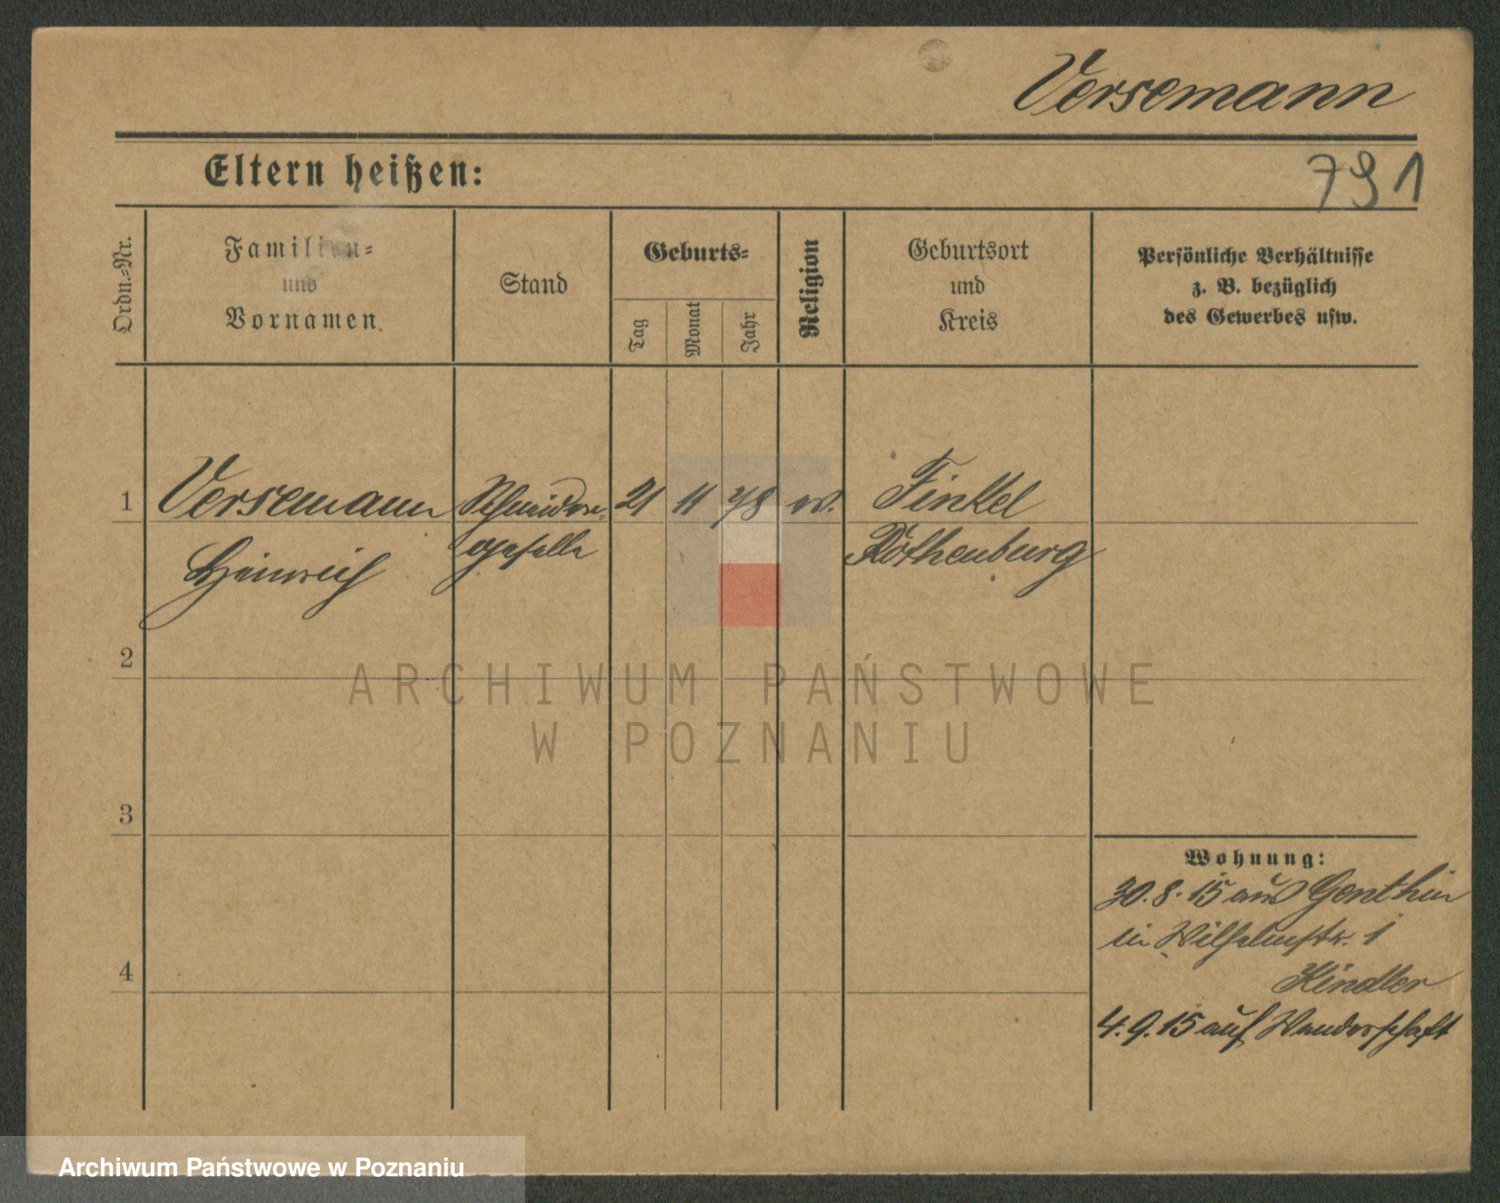 Versemann
Eltern heißen:
791
Ordn.-Nr.
Familien-
und
Vornamen.
Stand
Geburts-
Tag
Monat
Jahr
Religion
Geburtsort
und
Kreis
Persönliche Verhältnisse
z. B. bezüglich
des Gewerbes usw.
1 Versemann Schneider- 21 11 78 ev. Finkel
Heinrich geselle Rothenburg
2
ARCHIWUM PAŃSTWOWE
W POZNANIU
3
Wohnung:
30.8.15 aus Genthin
in Wilhelmstr. 1
Kindler
4
4.9.15 auf Wanderschaft
Archiwum Państwowe w Poznaniu